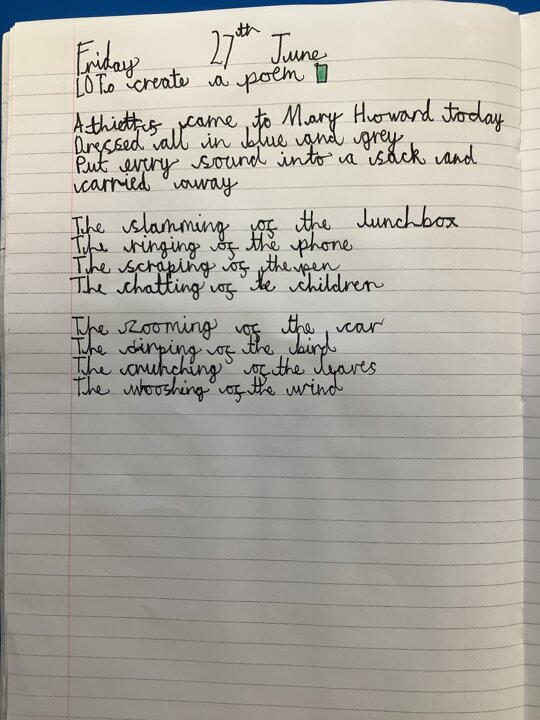 Friday 27th June
LO To create a poem
Athietfs came to Mary Howard today
Dressed all in blue and grey
Put every sound into a sack and
carried away
The slamming of the lunchbox
The ringing of the phone
The scraping of the pen
The chatting of te children
The zooming of the car
The cirping of the bird
The crunching of the leaves
The wooshing of the wind